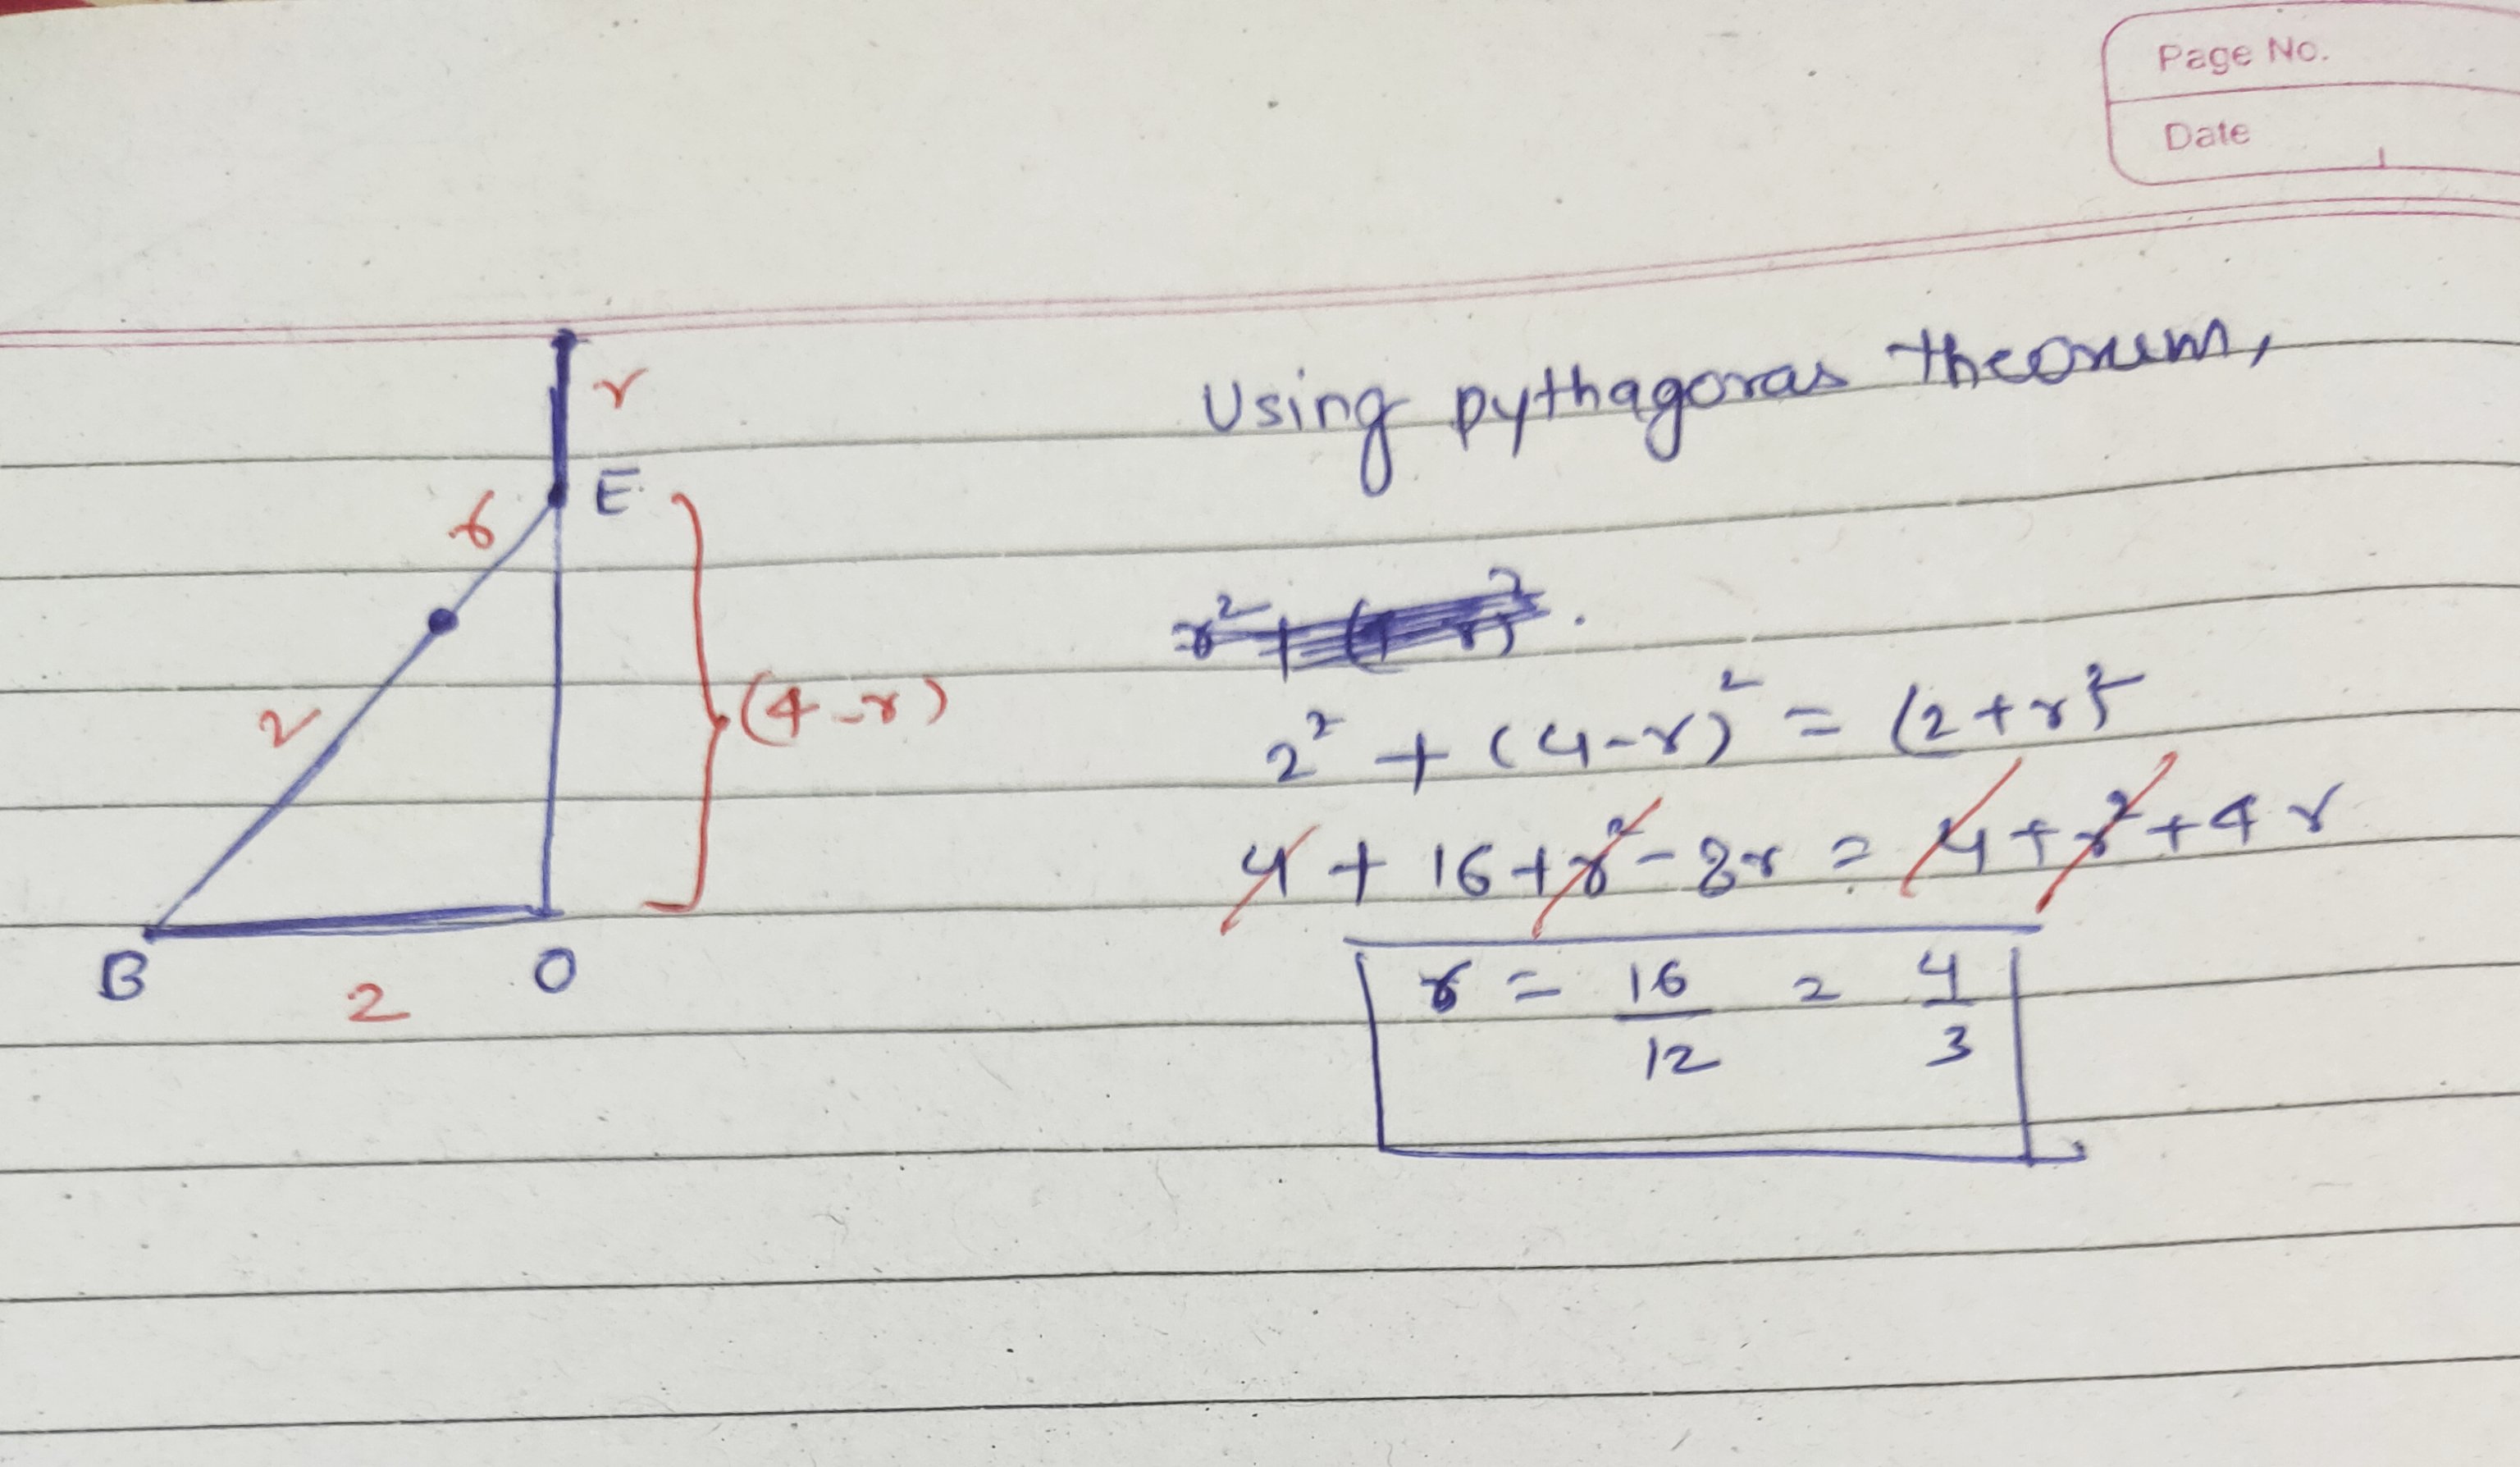 Page No.
Date
r
E
r
(4-r)
2
B
O
2
Using pythagoras theorem,
2² + (4-r)² = (2+r)²
4 + 16 + r² - 8r = 4 + r² + 4r
r = 16/12 = 4/3